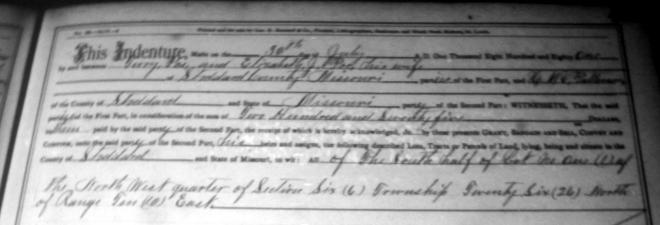 This Indenture, Made on the 30th day July A. D. One Thousand Eight Hundred and Eighty One
by and between Perry Poe and Elizabeth J. Poe his wife
of Stoddard County Missouri parties of the First Part, and
of the County of Stoddard and State of Missouri party of the Second Part: WITNESSETH, That the said
parties of the First Part, in consideration of the sum of Two Hundred and Seventy five DOLLARS,
to them paid by the said party of the Second Part, the receipt of which is hereby acknowledged, do by these presents GRANT, BARGAIN AND SELL, CONVEY AND
CONFIRM, unto the said party of the Second Part, his heirs and assigns, the following described Lots, Tracts or Parcels of Land, lying, being and situate in the
County of Stoddard and State of Missouri, to wit: All of The South half of Lot No one (1) of
The North West quarter of Section Six (6) Township Twenty Six (26) North
of Range Ten (10) East.